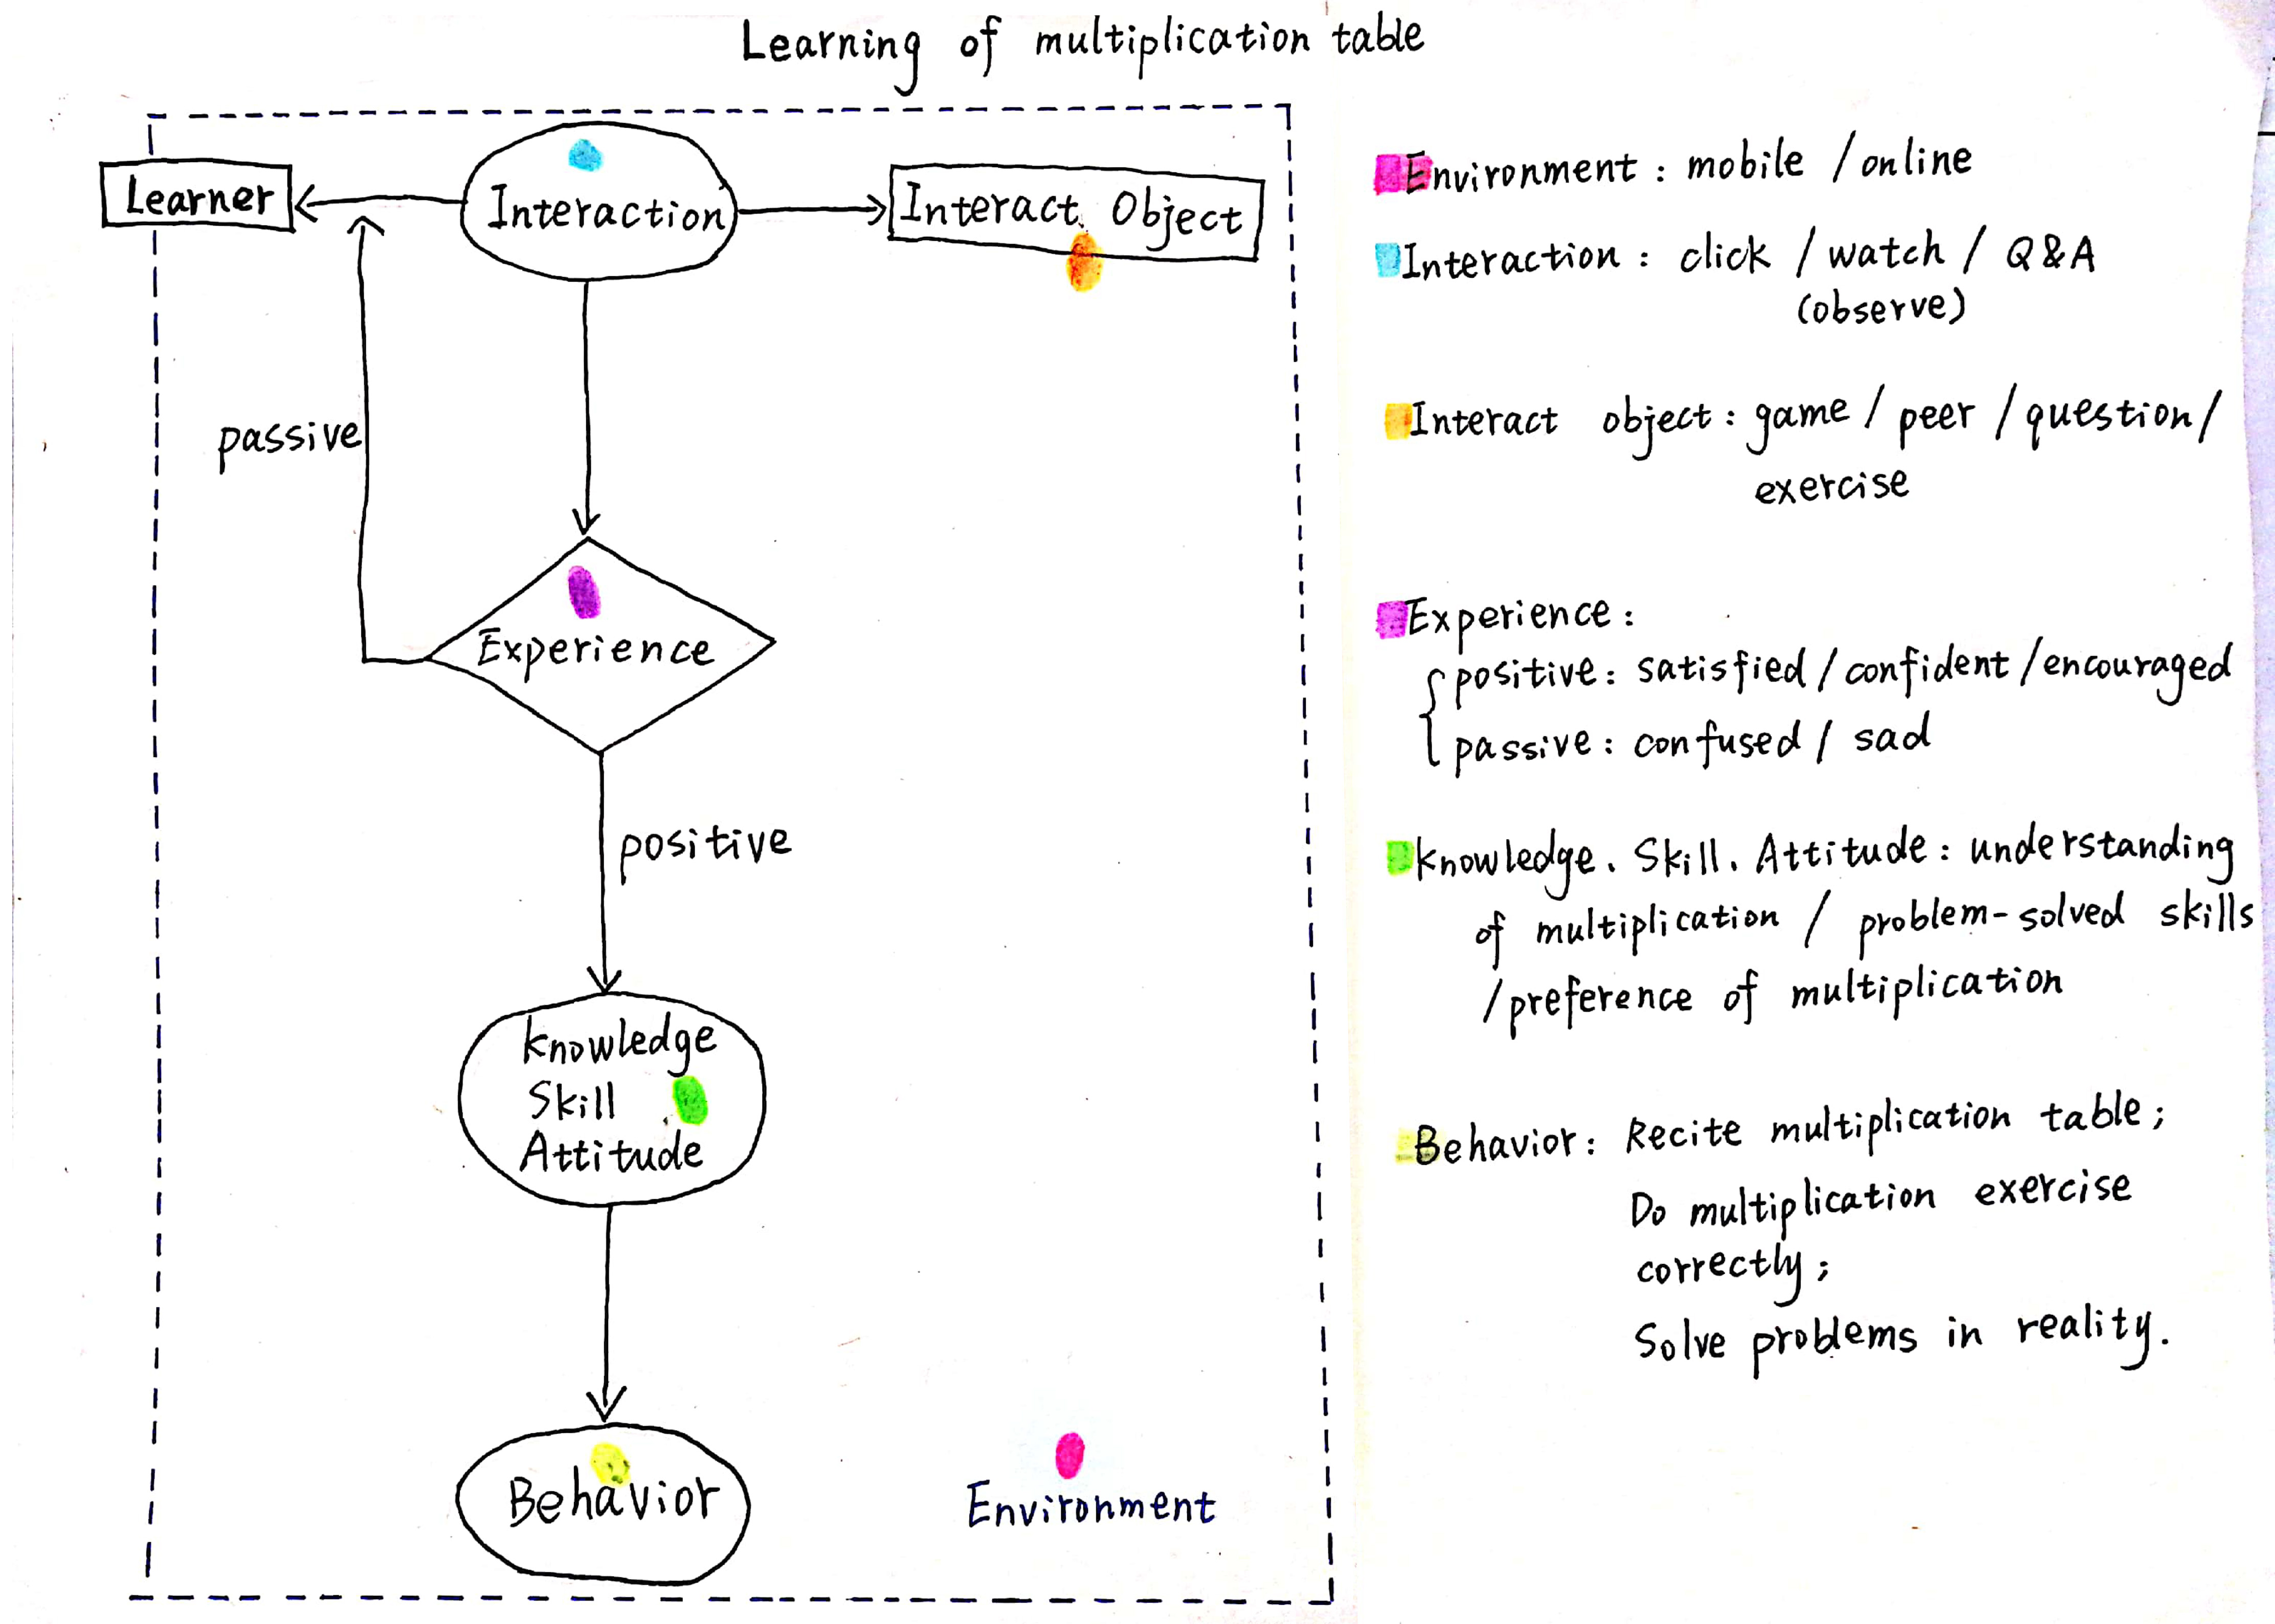 Learning of multiplication table
Learner
Interaction
Interact Object
passive
Experience
positive
Knowledge
Skill
Attitude
Behavior
Environment
Environment : mobile / online
Interaction : click / watch / Q&A
(observe)
Interact object : game / peer / question /
exercise
Experience :
positive : satisfied / confident / encouraged
passive : confused / sad
Knowledge. Skill. Attitude : understanding
of multiplication / problem-solved skills
/ preference of multiplication
Behavior : Recite multiplication table ;
Do multiplication exercise
correctly ;
Solve problems in reality.